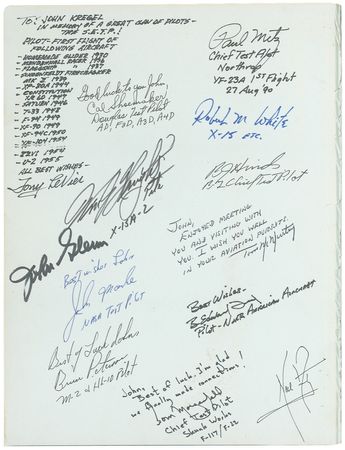 TO: JOHN KREGEL
IN MEMORY OF A GREAT CLAN OF PILOTS-
THE S.E.T.P.!
PILOT-FIRST FLIGHT OF
FOLLOWING AIRCRAFT
HOMEMADE GLIDER 1930
1936
" 1937
1939
XP-80A 1944
CONSTITUTION
TR ED 1947
SATURN 1946
T-33 1948
F-94 1949
XF-90 1949
XF-94C 1950
XF-104 1954
1954
U-2 1955
ALL BEST WISHES-
Tony LeVier
Good luck to you John,
Cal Shoemaker
Douglas Test Pilot
AD, F3D, A3D, A4D
Paul Metz
Chief Test Pilot
Northrop
YF-23A 1st Flight
27 Aug '90
Robert M White
X-15 ETC.
Pete Knight
X-15A-2
B-2 Chief Test Pilot
John Glenn
JOHN,
ENJOYED MEETING
YOU AND VISITING WITH
YOU. I WISH YOU WELL
IN YOUR AVIATION PURSUITS.
Best wishes John
NASA TEST PILOT
Best Wishes-
Pilot - North American Aircraft
Best of luck John
Bruce Peterson
M-2 & HL-10 Pilot
John,
Best of luck. I'm glad
we finally made connections!
Tom Morgenfeld
Chief Test Pilot
Skunk Works
F-117/F-22
Neil